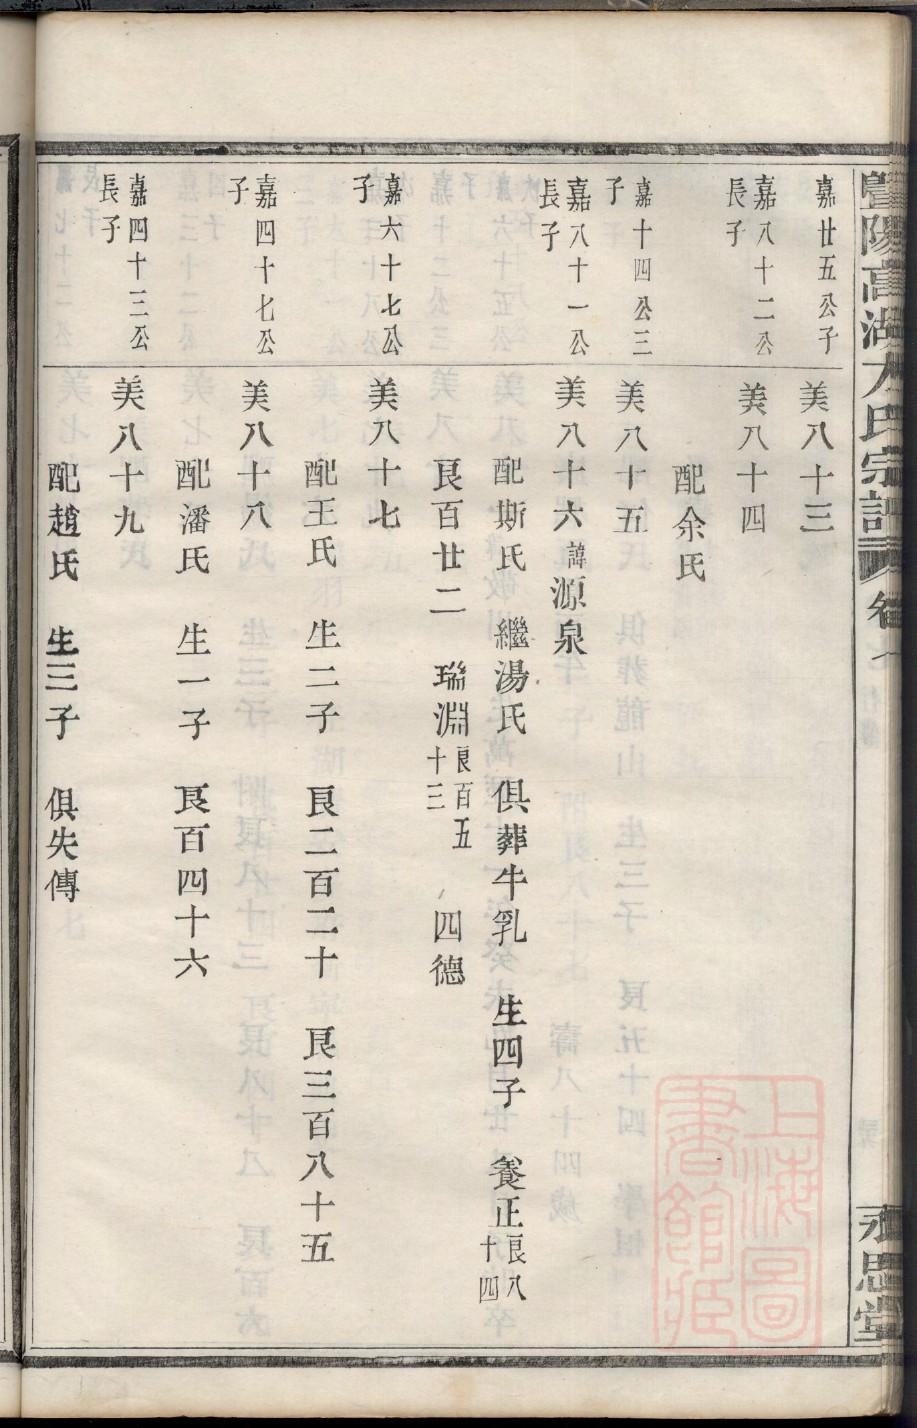 暨陽高湖方氏宗譜
永思堂
嘉廿五公子
美八十三
嘉八十二公
長子
美八十四
配余氏
嘉十四公三
子
美八十五
嘉八十一公
長子
美八十六 諱源泉
配斯氏 繼湯氏 俱葬牛乳 生四子 養正良八十四
良百廿二 瑞淵良百五十三 四德
嘉六十七公
子
美八十七
配王氏 生二子 良二百二十 良三百八十五
嘉四十七公
子
美八十八
配潘氏 生一子 良百四十六
嘉四十三公
長子
美八十九
配趙氏 生三子 俱失傳
上海圖書館藏